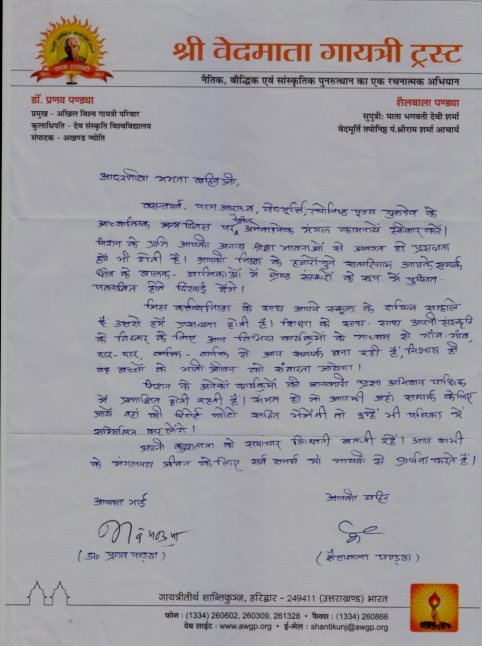 श्री वेदमाता गायत्री ट्रस्ट
नैतिक, बौद्धिक एवं सांस्कृतिक पुनरुत्थान का एक रचनात्मक अभियान
डॉ. प्रणव पण्ड्या
प्रमुख - अखिल विश्व गायत्री परिवार
कुलाधिपति - देव संस्कृति विश्वविद्यालय
संपादक - अखण्ड ज्योति
शैलबाला पण्ड्या
सुपुत्री: माता भगवती देवी शर्मा
वेदमूर्ति तपोनिष्ठ पं.श्रीराम शर्मा आचार्य
आदरणीया ममता बहिन जी,
परम आराध्य, वेदमूर्ति, तपोनिष्ठ पूज्य गुरुदेव के
आध्यात्मिक जन्म दिवस पर अनेकानेक मंगल कामनायें स्वीकार करें।
मिशन के प्रति आपकी अनन्य श्रद्धा भावनाओं से अवगत हो प्रसन्नता
हमें भी होती है। आपकी निष्ठा के हजारों गुने सत्परिणाम आपके सम्पर्क
क्षेत्र के बालक-बालिकाओं में श्रेष्ठ संस्कारों के रूप में पुष्पित-
पल्लवित होते दिखाई देंगे।
जिस कर्तव्यनिष्ठा के साथ आपने स्कूल के दायित्व सम्हाले
हैं उससे हमें प्रसन्नता होती है। शिक्षा के साथ-साथ अपनी संस्कृति
के विस्तार के लिए आप विभिन्न कार्यक्रमों के माध्यम से गाँव-गाँव,
द्वार-द्वार, व्यक्ति-व्यक्ति से आप सम्पर्क बना रही हैं, निश्चय ही
वह बच्चों के भावी जीवन को संवारता जायेगा।
मिशन के अनेकों कार्यक्रमों की जानकारी प्रज्ञा अभियान पाक्षिक
में प्रकाशित होती रहती है। संभव हो तो आप भी जहां सम्पर्क के लिए
जायें वहां की रिपोर्ट फोटो सहित भेजेंगी तो उन्हें भी पत्रिका में
सम्मिलित कर लेंगे।
अपनी कुशलता के समाचार लिखती बताती रहें। आप सभी
के मंगलमय जीवन के लिए सर्व समर्थ माँ गायत्री से प्रार्थना करते हैं।
आपका भाई
आपकी बहिन
(डॉ० प्रणव पण्ड्या)
(शैलबाला पण्ड्या)
गायत्रीतीर्थ शान्तिकुञ्ज, हरिद्वार - 249411 (उत्तराखण्ड) भारत
फोन : (1334) 260602, 260309, 261328 • फैक्स : (1334) 260866
वेब साईट : www.awgp.org • ई-मेल : shantikunj@awgp.org